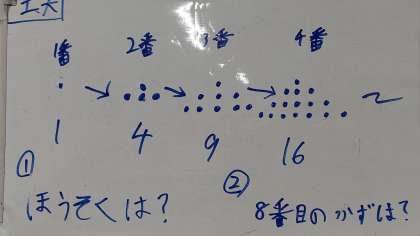 工夫
1番 2番 3番 4番
1 4 9 16
① ほうそくは?
② 8番目のかずは?